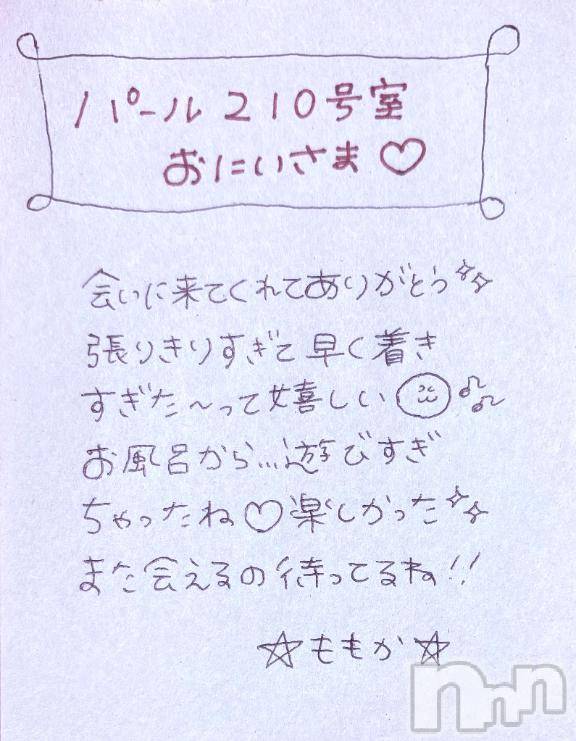 パール210号室
おにいさま♡
会いに来てくれてありがとう
張りきりすぎて早く着き
すぎた〜って嬉しい
お風呂から…遊びすぎ
ちゃったね♡楽しかった
また会えるの待ってるね!!
☆ももか☆
nnn